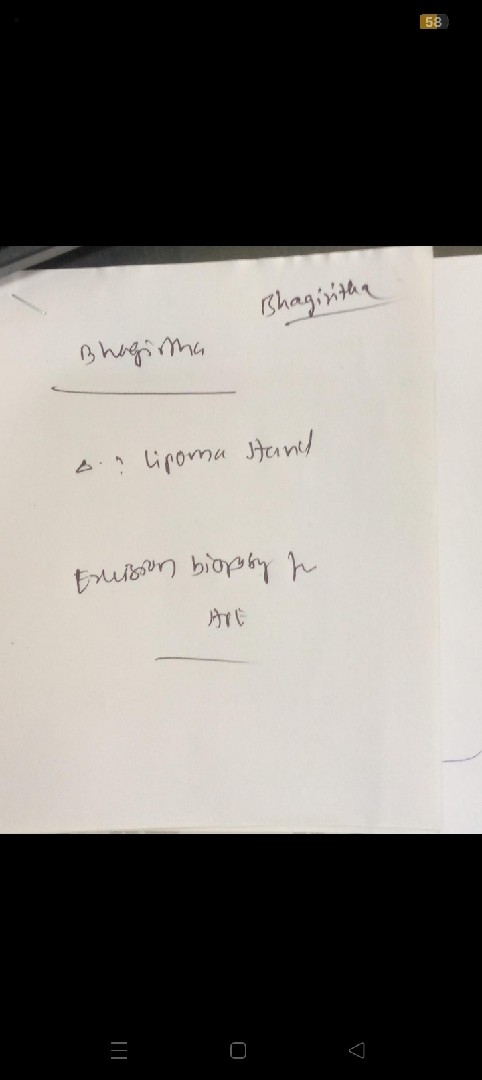 58
Bhagiritha
Bhagirtha
Δ. : Lipoma Hand
Excision biopsy for
HPE